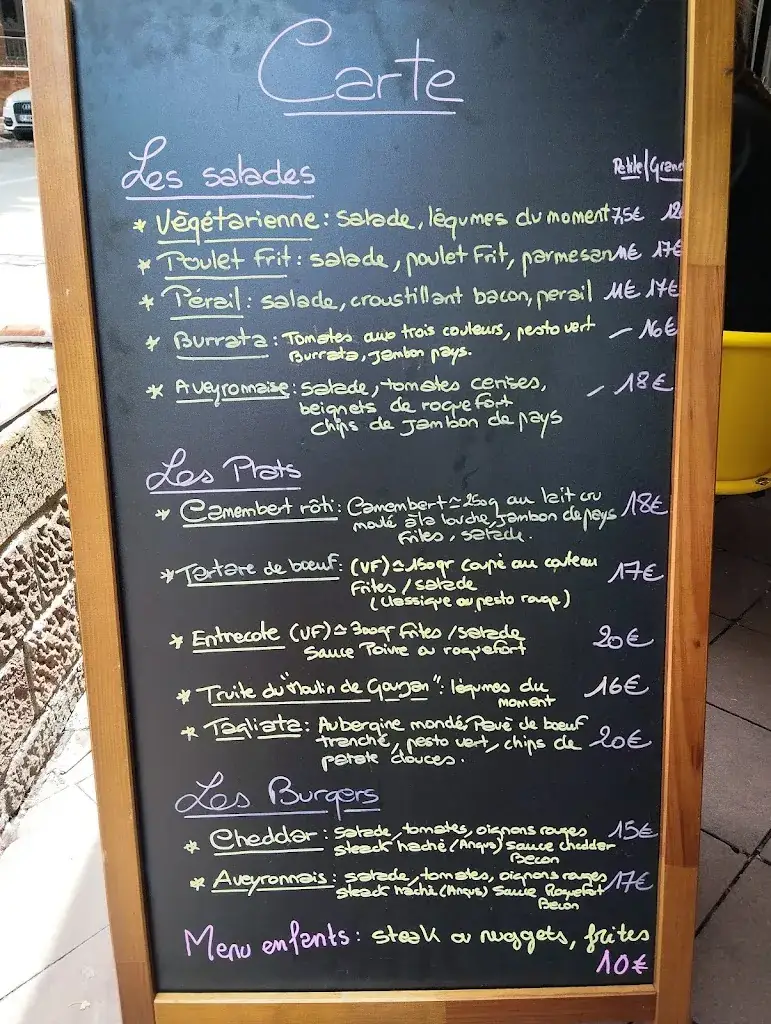 Carte
Les salades Petite/Grand
* Végétarienne : salade, légumes du moment 7,5€ 12
* Poulet Frit : salade, poulet Frit, parmesan 11€ 17€
* Pérail : salade, croustillant bacon, perail 11€ 17€
* Burrata : Tomates aux trois couleurs, pesto vert - 16€
Burrata, Jambon pays.
* Aveyronnaise : salade, tomates cerises, - 18€
beignets de roquefort
chips de Jambon de pays
Les Plats
* Camembert rôti : Camembert ≃ 250g au lait cru 18€
moulé à la louche, Jambon de pays
Frites, salade.
* Tartare de bœuf : (VF) ≃ 150gr coupé au couteau 17€
Frites / salade
(classique ou pesto rouge)
* Entrecote (VF) ≃ 300gr Frites / salade 20€
Sauce Poivre ou roquefort
* Truite du "Moulin de Gourjan" : légumes du 16€
moment
* Tagliata : Aubergine mondé, Pavé de bœuf
tranché, pesto vert, chips de 20€
patate douces.
Les Burgers
* Cheddar : salade, tomates, oignons rouges 15€
steack haché (Angus) sauce cheddar
Becon
* Aveyronnais : salade, tomates, oignons rouges 17€
steack haché (Angus) sauce Roquefort
Becon
Menu enfants : steak ou nuggets, frites
10€